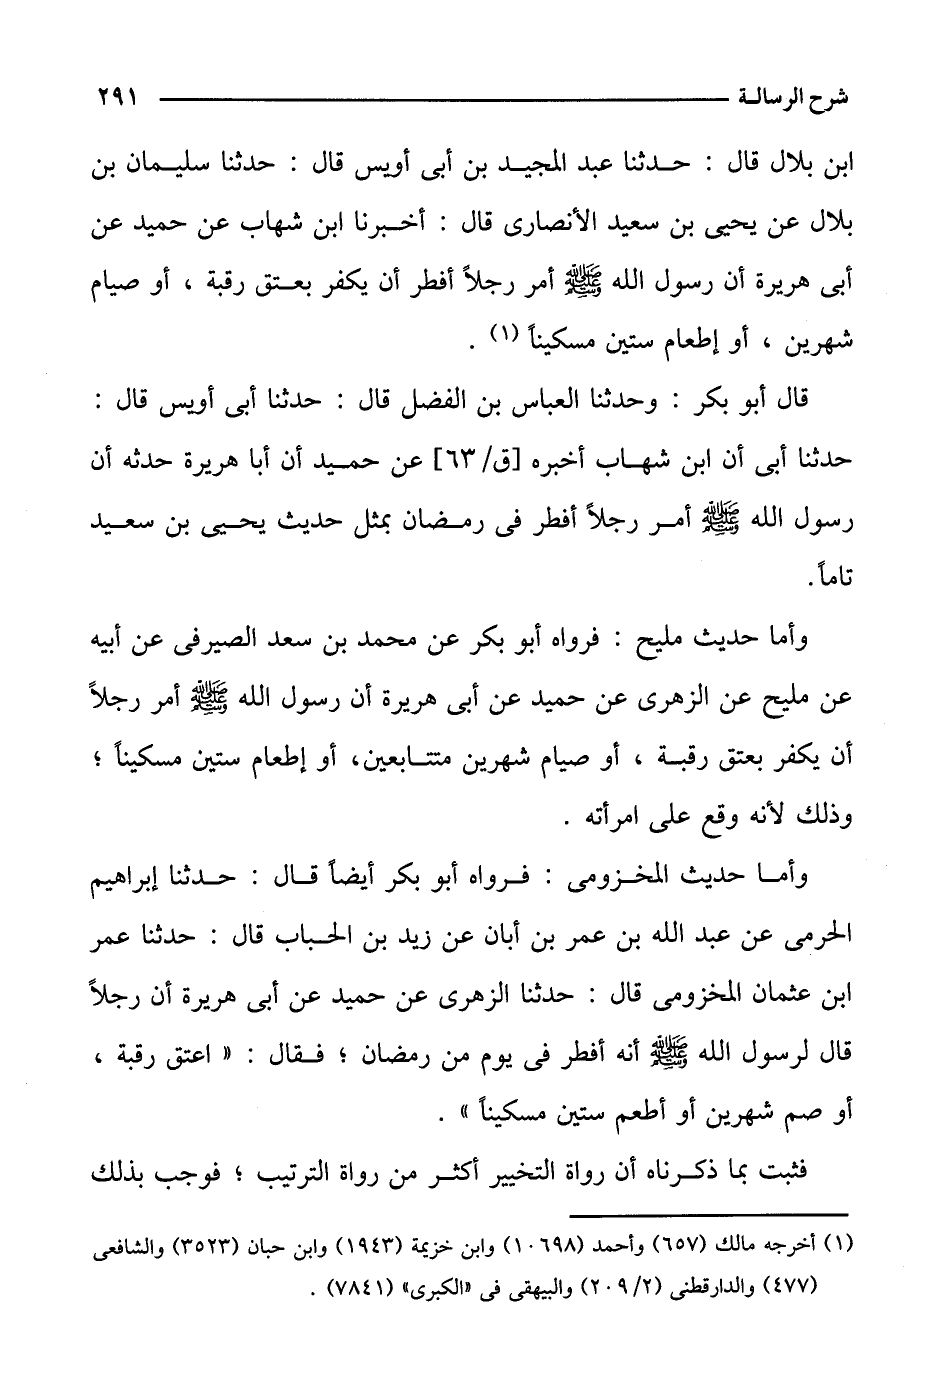 شرح الرسالة ٢٩١
ابن بلال قال : حدثنا عبد المجيد بن أبى أويس قال : حدثنا سليمان بن
بلال عن يحيى بن سعيد الأنصارى قال : أخبرنا ابن شهاب عن حميد عن
أبى هريرة أن رسول الله ﷺ أمر رجلاً أفطر أن يكفر بعتق رقبة ، أو صيام
شهرين ، أو إطعام ستين مسكيناً (١) .
قال أبو بكر : وحدثنا العباس بن الفضل قال : حدثنا أبى أويس قال :
حدثنا أبى أن ابن شهاب أخبره [ق/ ٦٣] عن حميد أن أبا هريرة حدثه أن
رسول الله ﷺ أمر رجلاً أفطر فى رمضان بمثل حديث يحيى بن سعيد
تاماً.
وأما حديث مليح : فرواه أبو بكر عن محمد بن سعد الصيرفى عن أبيه
عن مليح عن الزهرى عن حميد عن أبى هريرة أن رسول الله ﷺ أمر رجلاً
أن يكفر بعتق رقبة ، أو صيام شهرين متتابعين، أو إطعام ستين مسكيناً ؛
وذلك لأنه وقع على امرأته .
وأما حديث المخزومى : فرواه أبو بكر أيضاً قال : حدثنا إبراهيم
الحرمى عن عبد الله بن عمر بن أبان عن زيد بن الحباب قال : حدثنا عمر
ابن عثمان المخزومى قال : حدثنا الزهرى عن حميد عن أبى هريرة أن رجلاً
قال لرسول الله ﷺ أنه أفطر فى يوم من رمضان ؛ فقال : « اعتق رقبة ،
أو صم شهرين أو أطعم ستين مسكيناً » .
فثبت بما ذكرناه أن رواة التخيير أكثر من رواة الترتيب ؛ فوجب بذلك
(١) أخرجه مالك (٦٥٧) وأحمد (١٠٦٩٨) وابن خزيمة (١٩٤٣) وابن حبان (٣٥٢٣) والشافعى
(٤٧٧) والدارقطنى (٢/ ٢٠٩) والبيهقى فى «الكبرى» (٧٨٤١) .